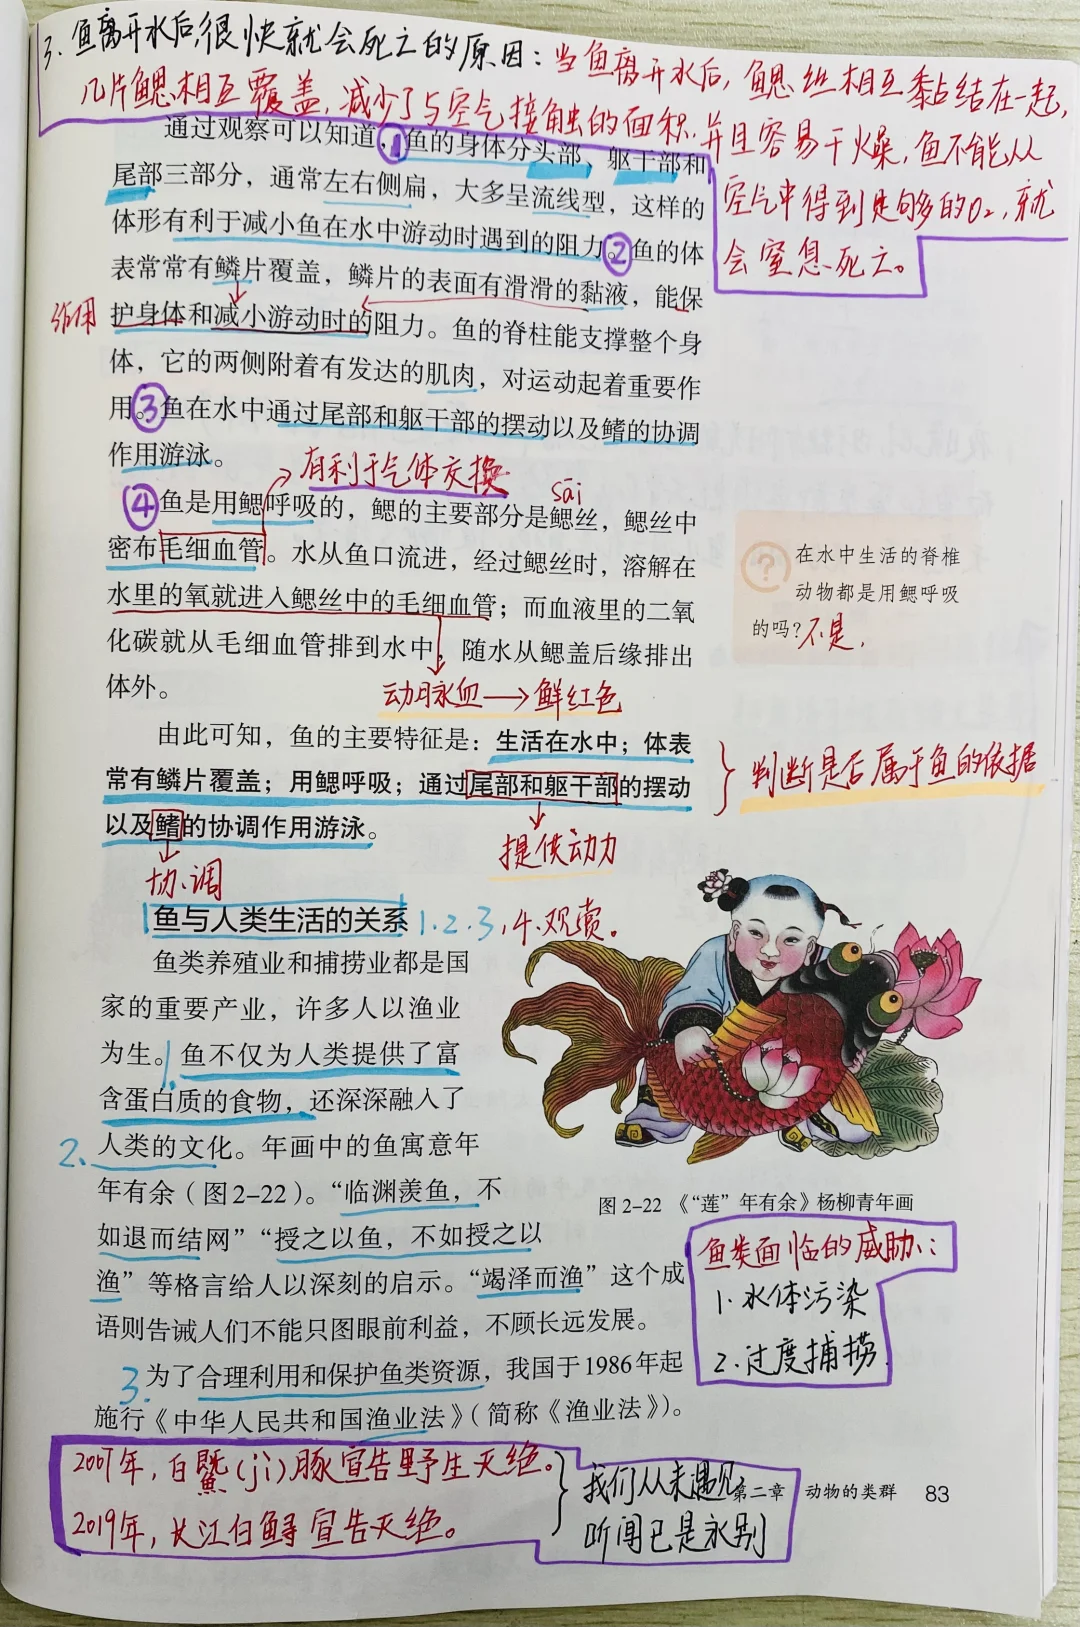 3. 鱼离开水后,很快就会死亡的原因：当鱼离开水后,鳃丝相互黏结在一起,
几片鳃相互覆盖,减少了与空气接触的面积.并且容易干燥,鱼不能从
空气中得到足够的O₂,就
会窒息死亡。
通过观察可以知道，①鱼的身体分头部、躯干部和
尾部三部分，通常左右侧扁，大多呈流线型，这样的
体形有利于减小鱼在水中游动时遇到的阻力。②鱼的体
表常常有鳞片覆盖，鳞片的表面有滑滑的黏液，能保
作用
护身体和减小游动时的阻力。鱼的脊柱能支撑整个身
体，它的两侧附着有发达的肌肉，对运动起着重要作
用。③鱼在水中通过尾部和躯干部的摆动以及鳍的协调
作用游泳。
有利于气体交换
sāi
④鱼是用鳃呼吸的，鳃的主要部分是鳃丝，鳃丝中
密布毛细血管。水从鱼口流进，经过鳃丝时，溶解在
水里的氧就进入鳃丝中的毛细血管；而血液里的二氧
化碳就从毛细血管排到水中，随水从鳃盖后缘排出
体外。
动脉血→鲜红色
?
在水中生活的脊椎
动物都是用鳃呼吸
的吗？不是.
由此可知，鱼的主要特征是：生活在水中；体表
常有鳞片覆盖；用鳃呼吸；通过尾部和躯干部的摆动
以及鳍的协调作用游泳。
}判断是否属于鱼的依据
提供动力
协调
鱼与人类生活的关系 1.2.3,4.观赏。
鱼类养殖业和捕捞业都是国
家的重要产业，许多人以渔业
为生。1.鱼不仅为人类提供了富
含蛋白质的食物，还深深融入了
2.人类的文化。年画中的鱼寓意年
年有余（图2-22）。“临渊羡鱼，不
如退而结网”“授之以鱼，不如授之以
渔”等格言给人以深刻的启示。“竭泽而渔”这个成
语则告诫人们不能只图眼前利益，不顾长远发展。
3.为了合理利用和保护鱼类资源，我国于1986年起
施行《中华人民共和国渔业法》（简称《渔业法》）。
图2-22 《“莲”年有余》杨柳青年画
鱼类面临的威胁：
1.水体污染
2.过度捕捞.
2007年,白鱀(jì)豚宣告野生灭绝。
2019年,长江白鲟宣告灭绝。
}我们从未遇见
听闻已是永别
第二章 动物的类群 83